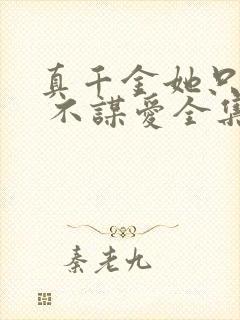 真千金她只
不謀愛全集
秦老九